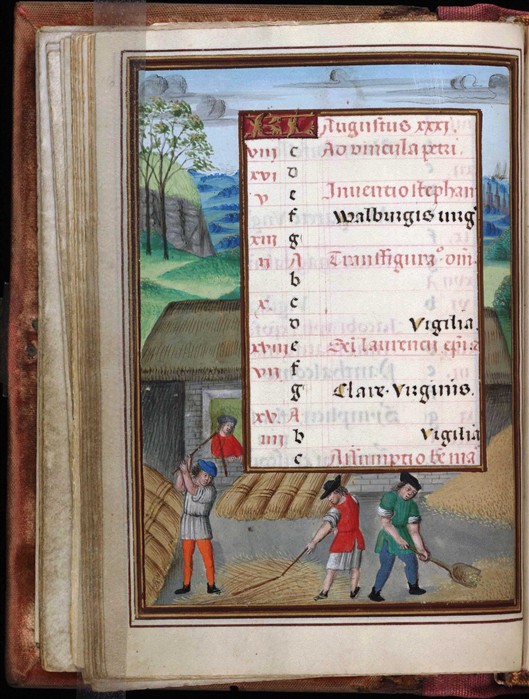 KL Augustus xxxj.
viii c Ad vincula petri
xvi d
v e Inventio stephan
f Walburgis virg
xiii g
ii A Transfigura° dm̄.
b
x c
d Vigilia.
xviii e Sc̄i laurencij
vii f
g Clare Virginis.
xv A
iiii b Vigilia
c Assumptio be ma